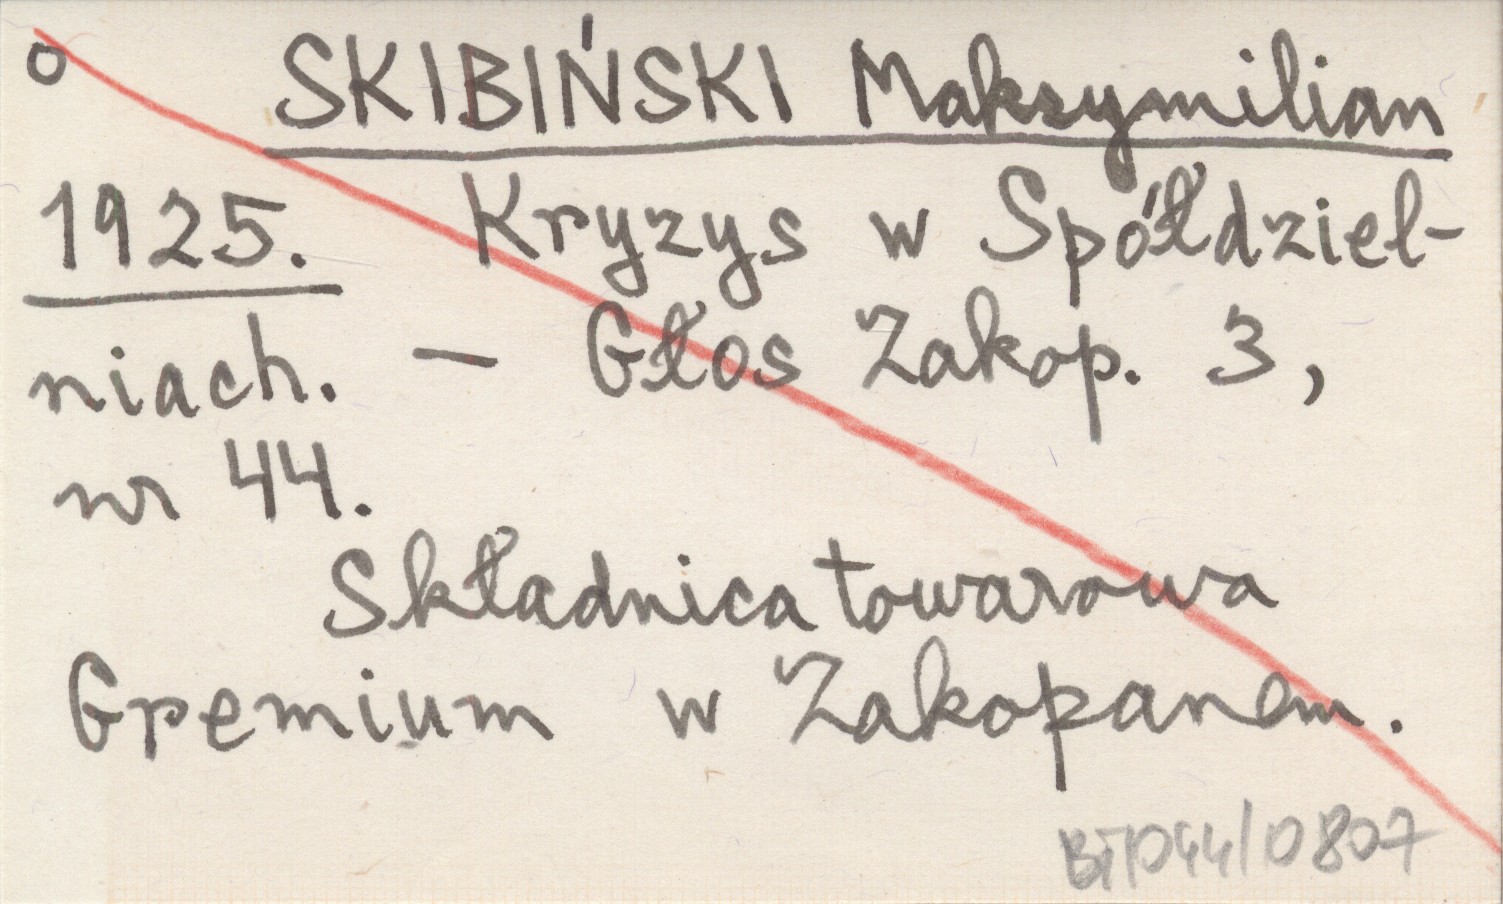 o SKIBIŃSKI Maksymilian
1925. Kryzys w Spółdziel-
niach. — Głos Zakop. 3,
nr 44.
Składnica towarowa
Gremium w Zakopanem.
BT/044/0807